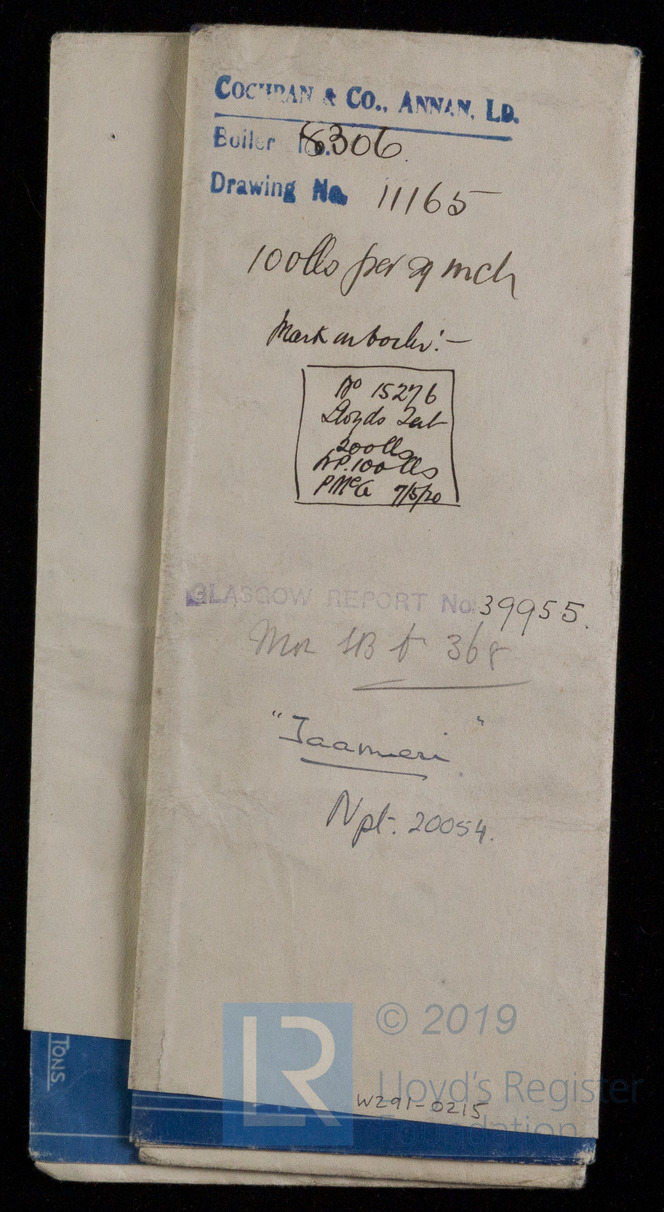 COCHRAN & CO., ANNAN, LD.
Boiler No. 8306.
Drawing No. 11165
100lbs per sq inch
Mark on boiler:-
No 15276
Lloyds Test
200lbs
W.P. 100lbs
PMcG 7/5/20
GLASGOW REPORT No. 39955.
368
"Jaameri"
Npt. 20054.
TONS.
LR
© 2019
Lloyd's Register
Foundation
W291-0215